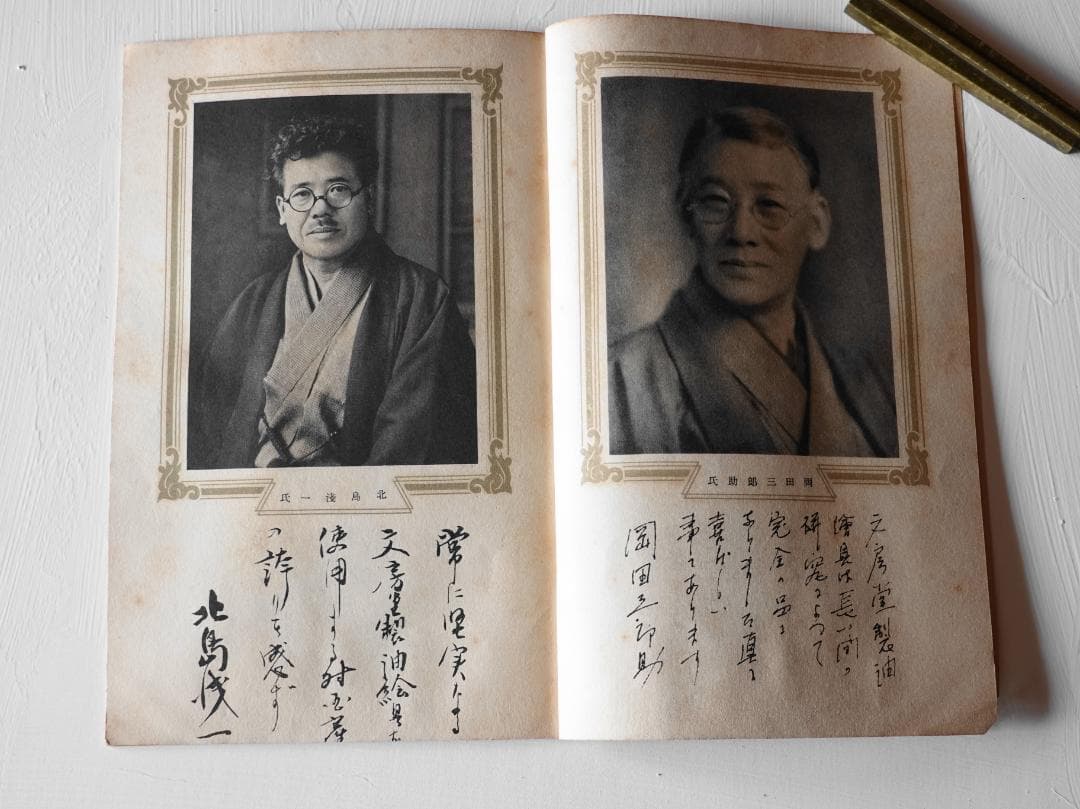 岡田三郎助氏
文房堂製油
繪具は長い間の
研究によつて
完全の品に
なりました真に
喜ばしい
事であります
岡田三郎助
北島淺一氏
常に堅実なる
文房堂製油絵具を
使用する
の誇りを感ず
北島浅一